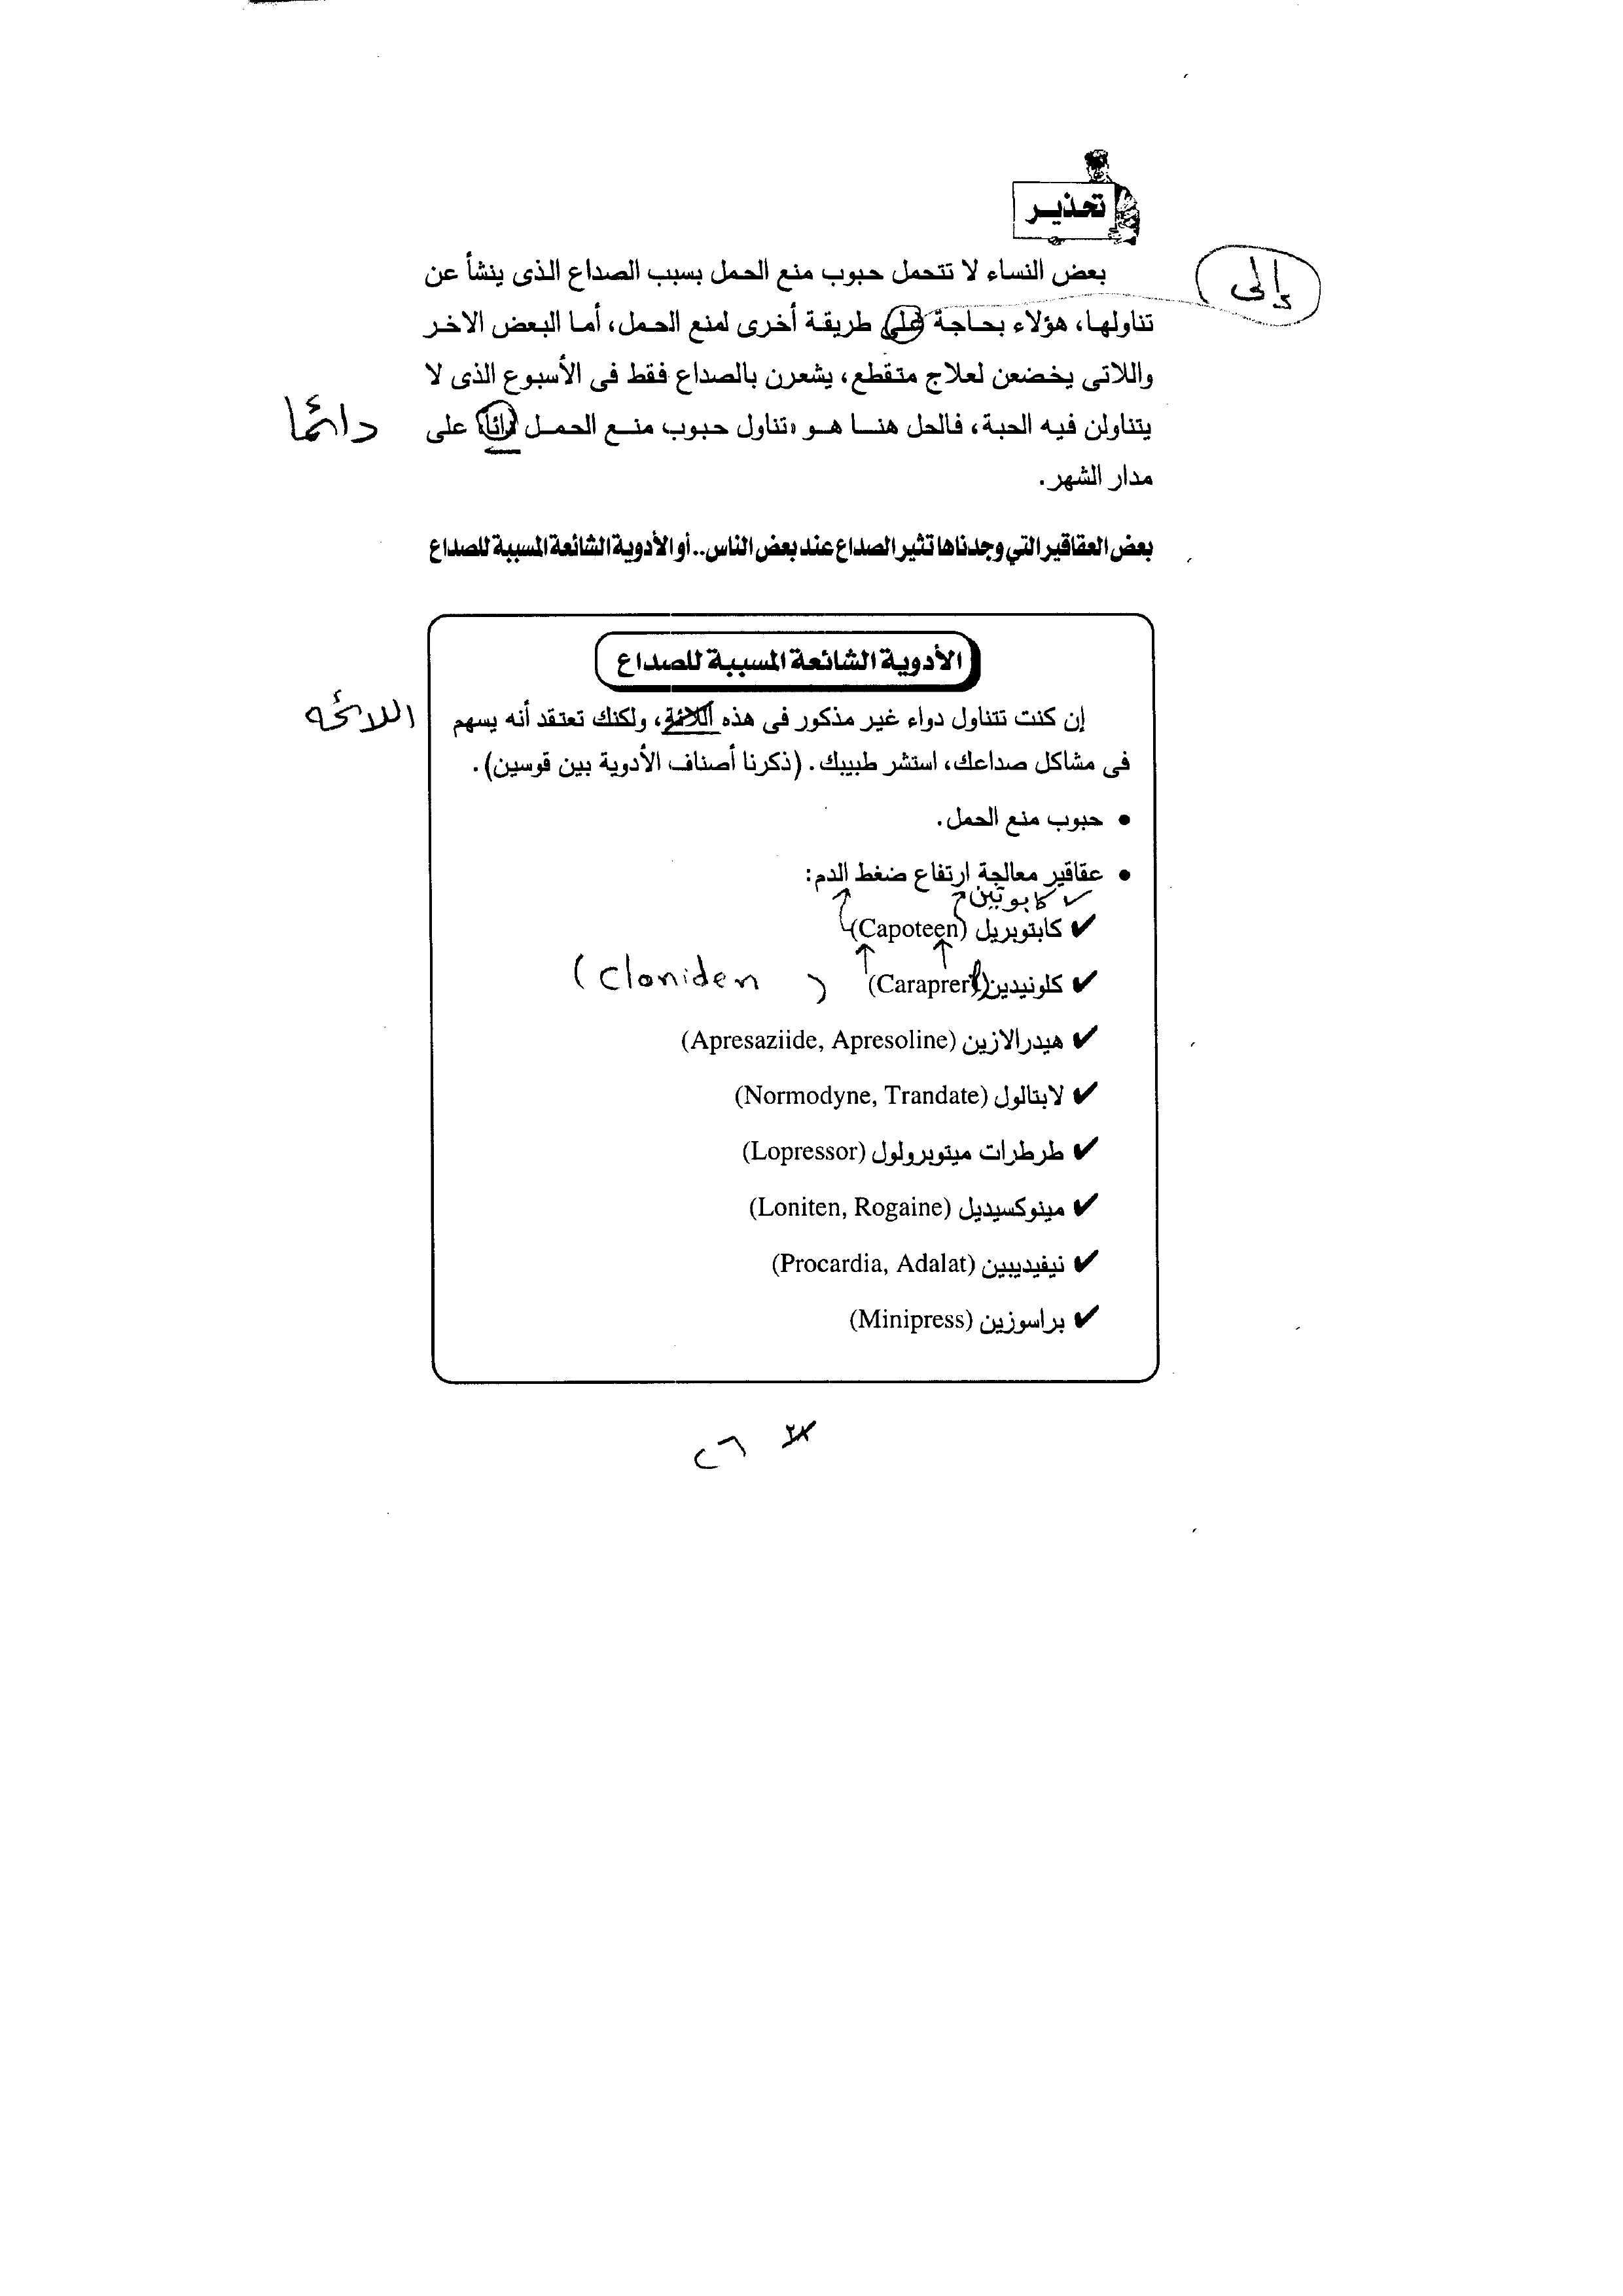 تحذيـر
إلى
بعض النساء لا تتحمل حبوب منع الحمل بسبب الصداع الذى ينشأ عن
تناولها، هؤلاء بحاجة على طريقة أخرى لمنع الحمل، أما البعض الاخر
واللاتى يخضعن لعلاج متقطع، يشعرن بالصداع فقط فى الأسبوع الذى لا
يتناولن فيه الحبة، فالحل هنـا هـو «تناول حبوب منـع الحمـل على
دائمًا
مدار الشهر.
بعض العقاقير التي وجدناها تثير الصداع عند بعض الناس.. أو الأدوية الشائعة المسببة للصداع
الأدوية الشائعة المسببة للصداع
إن كنت تتناول دواء غير مذكور فى هذه ، ولكنك تعتقد أنه يسهم
اللائحه
فى مشاكل صداعك، استشر طبيبك. (ذكرنا أصناف الأدوية بين قوسين).
• حبوب منع الحمل.
• عقاقير معالجة ارتفاع ضغط الدم:
✓ كابوتين
✔ كابتوبريل (Capoteen)
✔ كلونيدين (Caraprer) (Cloniden)
✔ هيدرالازين (Apresaziide, Apresoline)
✔ لابتالول (Normodyne, Trandate)
✔ طرطرات ميتوبرولول (Lopressor)
✔ مينوكسيديل (Loniten, Rogaine)
✔ نيفيديبين (Procardia, Adalat)
✔ براسوزين (Minipress)
٢٨
٢٦